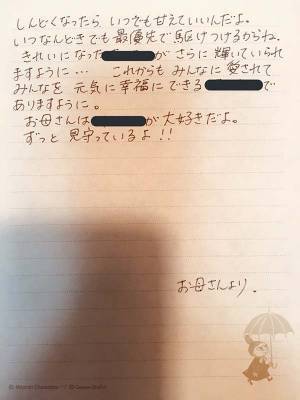 しんどくなったら いつでも甘えていいんだよ。
いつなんどきでも 最優先で駆けつけるからね。
きれいになった が さらに 輝いていられ
ますように… これからも みんなに 愛されて
みんなを 元気に幸福にできる で
ありますように。
お母さんは が 大好きだよ。
ずっと 見守っているよ!!
お母さんより。